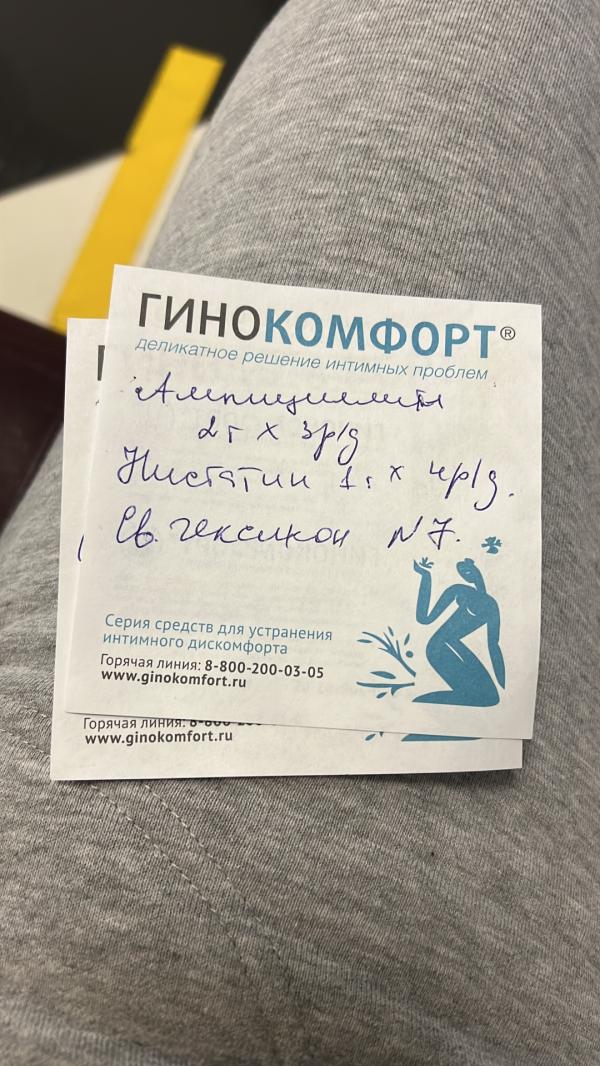 ГИНОКОМФОРТ®
деликатное решение интимных проблем
Ампициллин
2г х 3р/д
Нистатин 1г х 4р/д.
Св. гексикон N7.
Серия средств для устранения
интимного дискомфорта
Горячая линия: 8-800-200-03-05
www.ginokomfort.ru
Горячая линия: 8-800-200
www.ginokomfort.ru